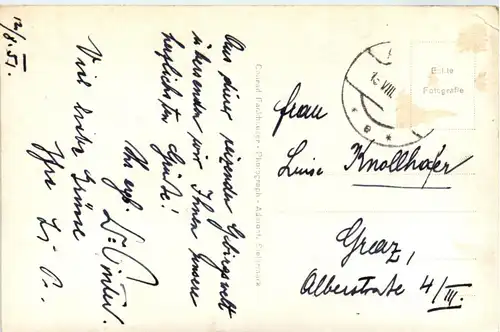 12/8. 51.
Aus dieser reizenden Gebirgswelt
übersenden wir Ihnen unsere
herzlichsten Grüße!
Ihr erg. Dr.
Viele liebe Grüsse
Ihre
Photograph - Admont, Steiermark
13. VIII.
* e *
Echte
Fotografie
Frau
Luise Knollhofer
Graz,
Alberstraße 4/III.